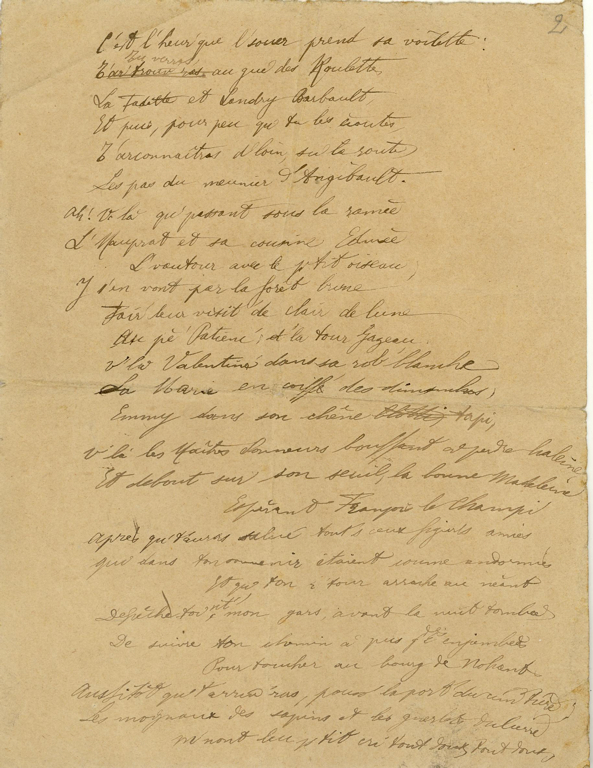 2
C'est l'heur' que l'souer prend sa voilette :
Tu verras
T'ar'trouv'ras au gué des Roulettes
La Fadette et Landry Barbault
Et puis, pour peu que tu les écoutes,
T'arconnaîtras d'loin, su la route,
Les pas du meunier d'Angibault.
Ah! V'là qu'passant sous la ramée
L'Mauprat et sa cousine Edmée
L'vautour avec le p'tit oiseau,
I s'en vont par la forêt brune
Fair' leur visit' de clair de lune
Au pé' Patienc', à la tour Gazeau.
V'là Valentine dans sa rob' blanche
La Marie en coiffe des dimanches,
Emmy dans son chêne blotti tapi,
V'là les Maîtres Sonneurs bouffant à perdre haleine
Et debout sur son seuil, la bonne Madeleine
Espérant François le Champi
Après qu't'auras salué tout's ceux figures amies
qui dans ton souvenir étaient comme endormies
Et qu'ton r'tour arrache au néant
Dépêche-toi, mon gars, avant la nuit tombée
De suivre ton chemin à pus fortes enjambées
Pour toucher au bourg de Nohant.
Aussitôt qu't'arriv'ras, pouss' la port' du cim'tière
Les moignaux des sapins et les du lierre
M'nont leu p'tit cri tout doux, tout doux,